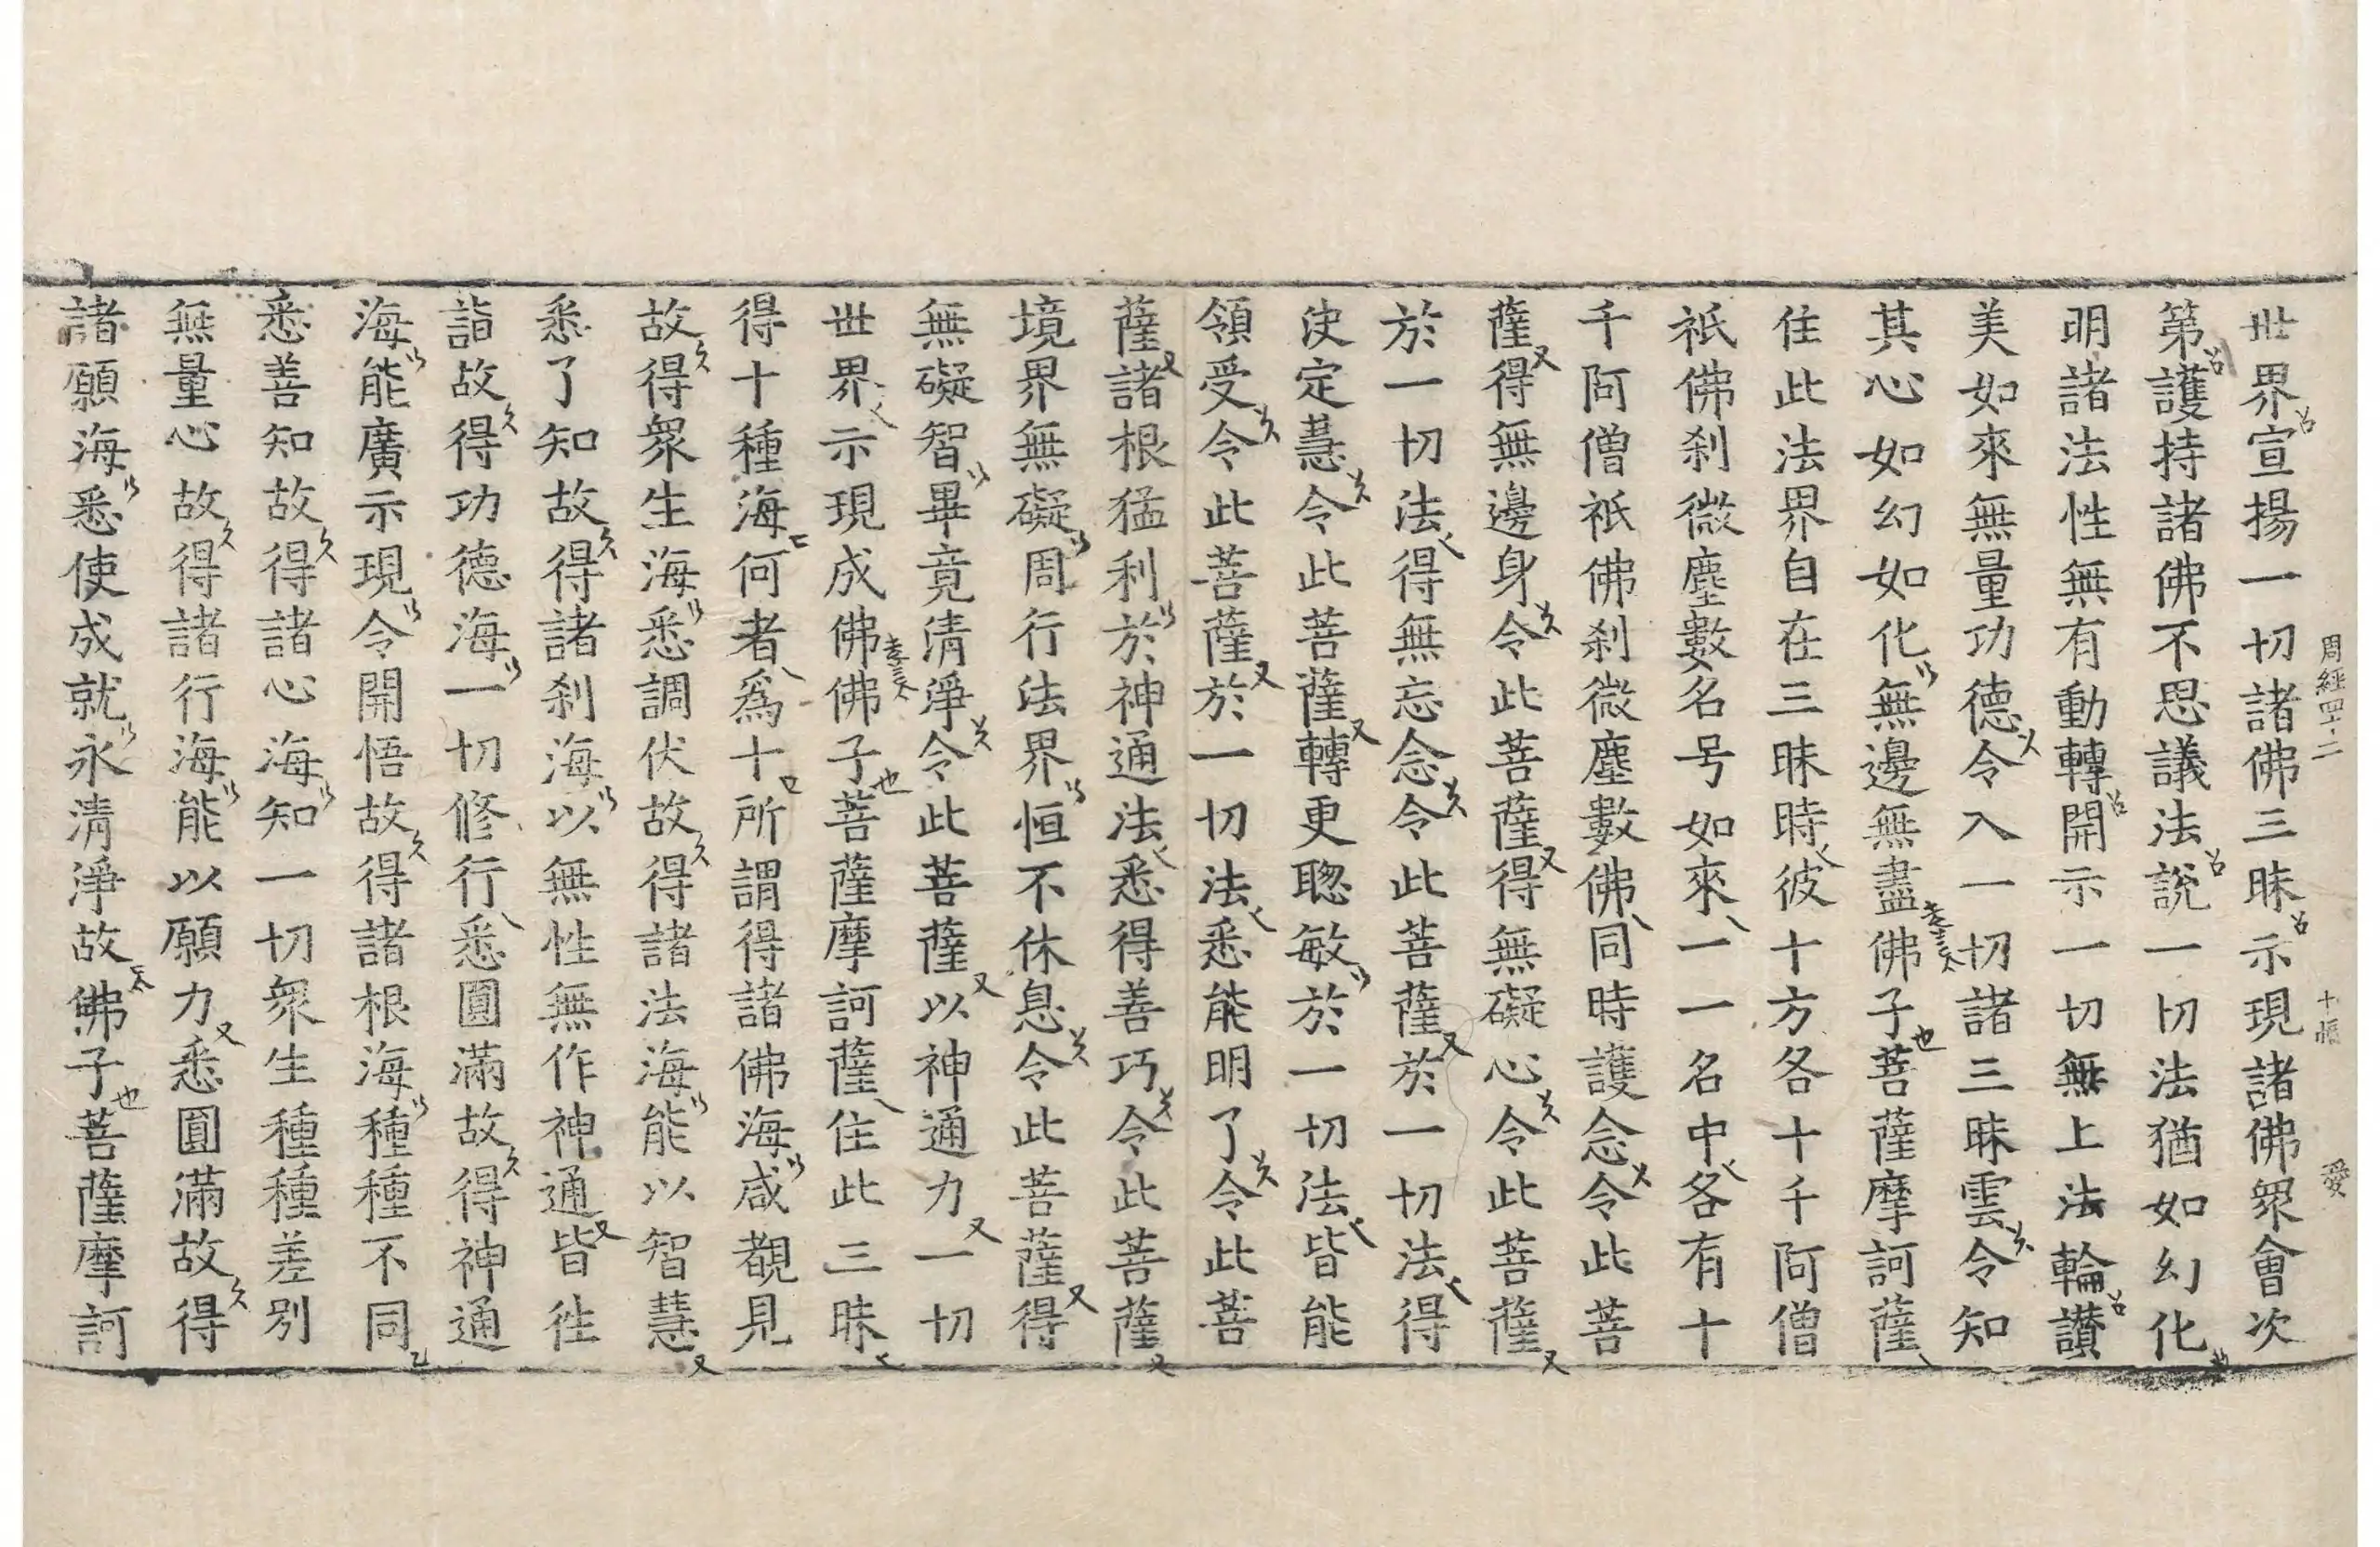 周經四十二 十幅 愛
世界宣揚一切諸佛三昧示現諸佛衆會次
第護持諸佛不思議法說一切法猶如幻化
明諸法性無有動轉開示一切無上法輪讃
美如來無量功德令入一切諸三昧雲令知
其心如幻如化無邊無盡佛子菩薩摩訶薩
住此法界自在三昧時彼十方各十千阿僧
祇佛刹微塵數名号如來一一名中各有十
千阿僧祇佛刹微塵數佛同時護念令此菩
薩得無邊身令此菩薩得無礙心令此菩薩
於一切法得無忘念令此菩薩於一切法得
決定慧令此菩薩轉更聰敏於一切法皆能
領受令此菩薩於一切法悉能明了令此菩
薩諸根猛利於神通法悉得善巧令此菩薩
境界無礙周行法界恒不休息令此菩薩得
無礙智畢竟清淨令此菩薩以神通力一切
世界示現成佛佛子菩薩摩訶薩住此三昧
得十種海何者爲十所謂得諸佛海咸覩見
故得衆生海悉調伏故得諸法海能以智慧
悉了知故得諸刹海以無性無作神通皆徃
詣故得功德海一切修行悉圓滿故得神通
海能廣示現令開悟故得諸根海種種不同
悉善知故得諸心海知一切衆生種種差別
無量心故得諸行海能以願力悉圓滿故得
諸願海悉使成就永清淨故佛子菩薩摩訶